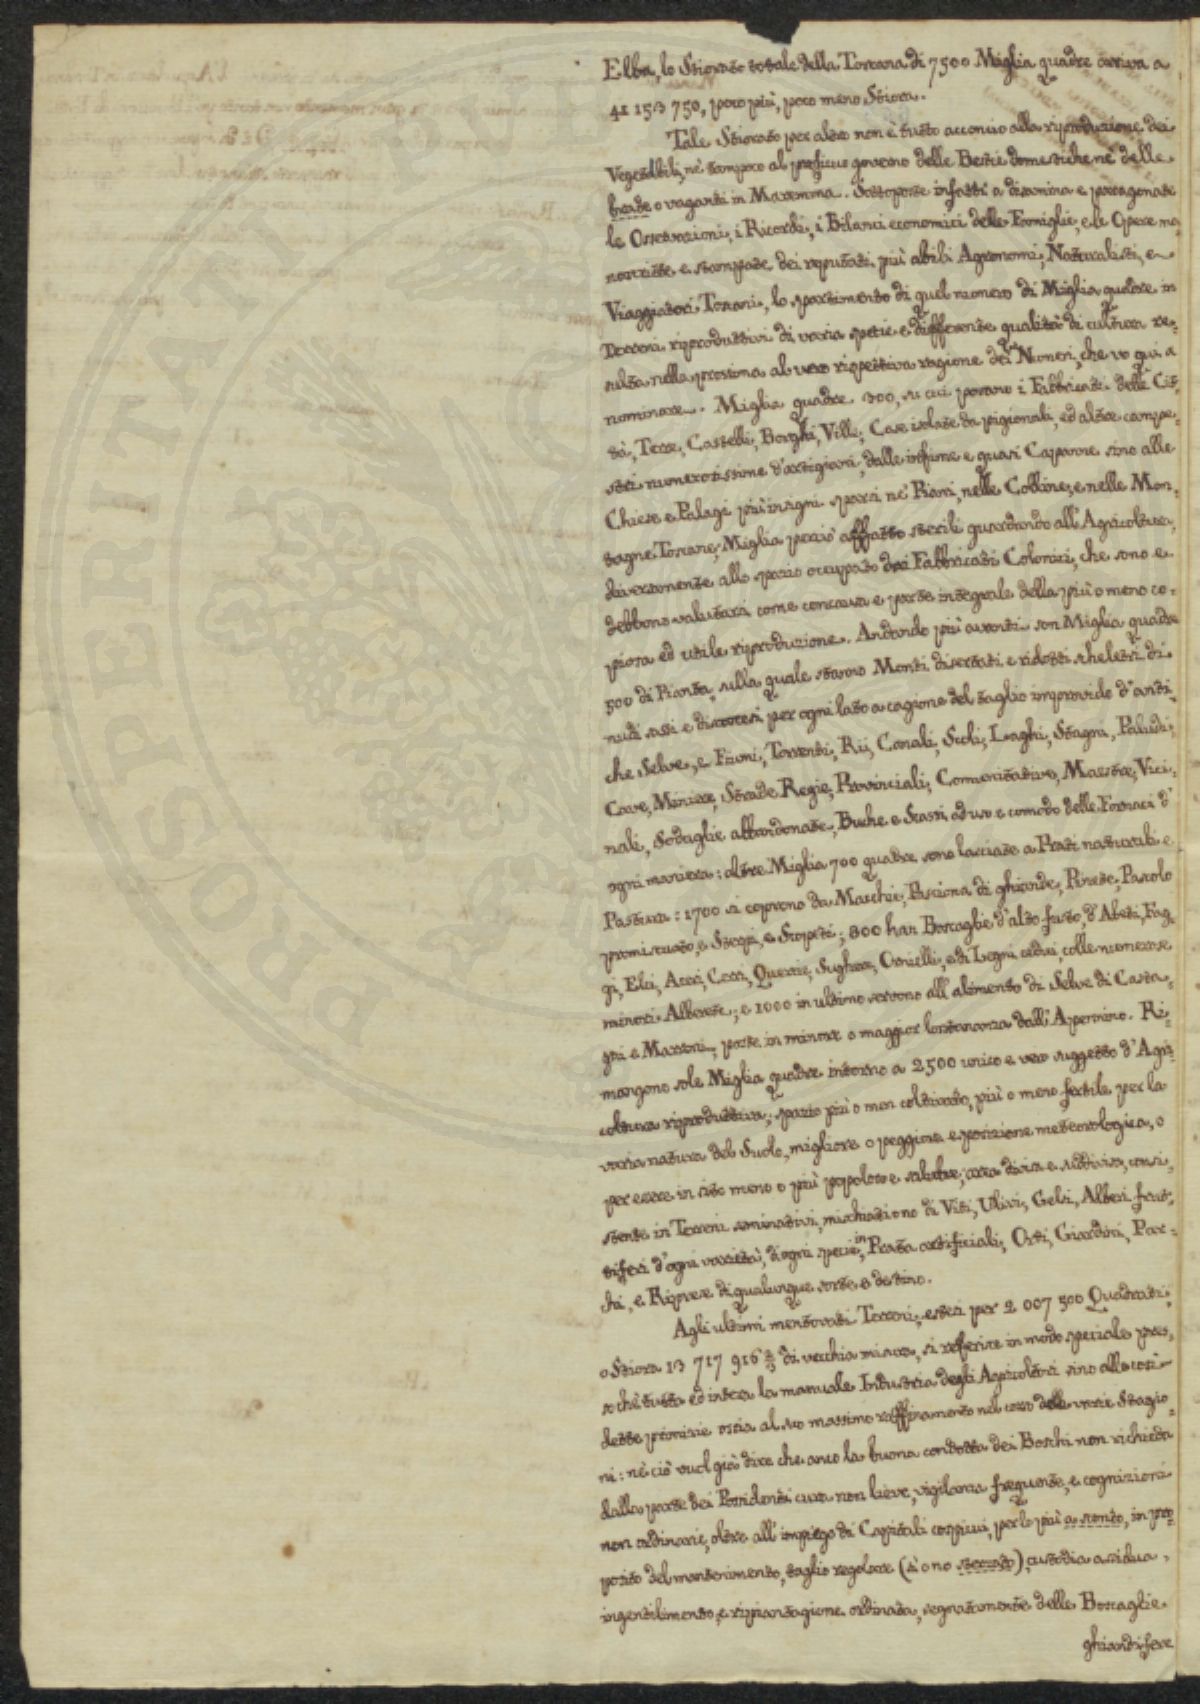 Elba, lo Stiorato totale della Toscana di 7500 Miglia quadre arriva a
41 153 750, poco più, poco meno Stiora.
Tale Stiorato per altro non è tutto acconcio alla riproduzione dei
Vegetabili, nè tampoco al proficuo governo delle Bestie domestiche nè delle
brade o vaganti in Maremma. Sottoposte infatti a disamina e paragonate
le Osservazioni, i Ricordi, i Bilanci economici delle Famiglie, e le Opere ma=
noscritte e stampate dei reputati più abili Agronomi, Naturalisti, e
Viaggiatori Toscani, lo spartimento di quel numero di Miglia quadre in
Terreni riproduttivi di varia specie e differente qualità di cultura re=
sulta nella prossima al vero rispettiva ragione dei Numeri, che vo qui a
nominare. Miglia quadre 300, su cui posano i Fabbricati delle Cit=
tà, Terre, Castelli, Borghi, Ville, Case isolate da pigionali, ed altre campe=
stri numerosissime d'artigiani, dalle infime e quasi Capanne sino alle
Chiese e Palagi più insigni sparsi ne' Piani, nelle Colline, e nelle Mon=
tagne Toscane; Miglia perciò affatto sterili guardando all'Agricoltura,
diversamente allo spazio occupato dai Fabbricati Colonici, che sono e
debbono valutarsi come concausa e parte integrale della più o meno co=
piosa ed utile riproduzione. Andando più avanti son Miglia quadre
500 di Pianta, sulla quale stanno Monti disertati e ridotti scheletri di
nudi sassi e discoscesi per ogni lato a cagione del taglio improvido d'anti=
che Selve, e Fiumi, Torrenti, Rii, Canali, Scoli, Laghi, Stagni, Paludi,
Cave, Miniere, Strade Regie, Provinciali, Comunitative, Maestre, Vici=
nali, Sodaglie abbandonate, Buche e Scassi ad uso e comodo delle Fornaci d'
ogni maniera: altre Miglia 700 quadre sono lasciate a Prati naturali e
Pastura: 1700 si coprono da Macchie, Pasciona di ghiande, Pinete, Pascolo
promiscuato, e Sterpi, e Scopeti; 800 han Boscaglie d'alto fusto, d'Abeti, Fag=
gi, Elci, Aceri, Cerri, Querce, Sughere, Ornielli, e di Legni cedui, colle numerose
minori Alberete; e 1000 in ultimo servono all'alimento di Selve di Casta=
gni e Marroni, poste in minore o maggior lontananza dall'Apennino. Ri=
mangono sole Miglia quadre intorno a 2500 unico e vero suggetto d'Agri=
coltura riproduttiva; spazio più o men coltivato, più o meno fertile per la
varia natura del Suolo, migliore o peggiore esposizione meteorologica, o
per essere in sito meno o più popoloso e salubre; area divisa e suddivisa, consi=
stente in Terreni seminativi, mischiati o no di Viti, Ulivi, Gelsi, Alberi frut=
tiferi d'ogni varietà, d'ogni specie, in Prata artificiali, Orti, Giardini, Par=
chi, e Riprese di qualunque sorte e destino.
Agli ultimi mentovati Terreni, estesi per 2 007 500 Quadrati,
o Stiora 13 717 916 2/3 di vecchia misura, si referisce in modo speciale pres=
so chè tutta ed intera la manuale Industria degli Agricoltori sino alle così
dette primizie ossia al suo massimo raffinamento nel corso delle varie Stagio=
ni: nè ciò vuol già dire che anco la buona condotta dei Boschi non richieda
dalla parte dei Possidenti cura non lieve, vigilanza frequente, e cognizioni
non ordinarie, oltre all'impiego di Capitali cospicui, per lo più a sconto, in pro=
posito del mantenimento, taglio regolare (sì o no sterzato), custodia assidua,
ingentilimento, e ripiantagione ordinata, segnatamente delle Boscaglie
ghiandifere